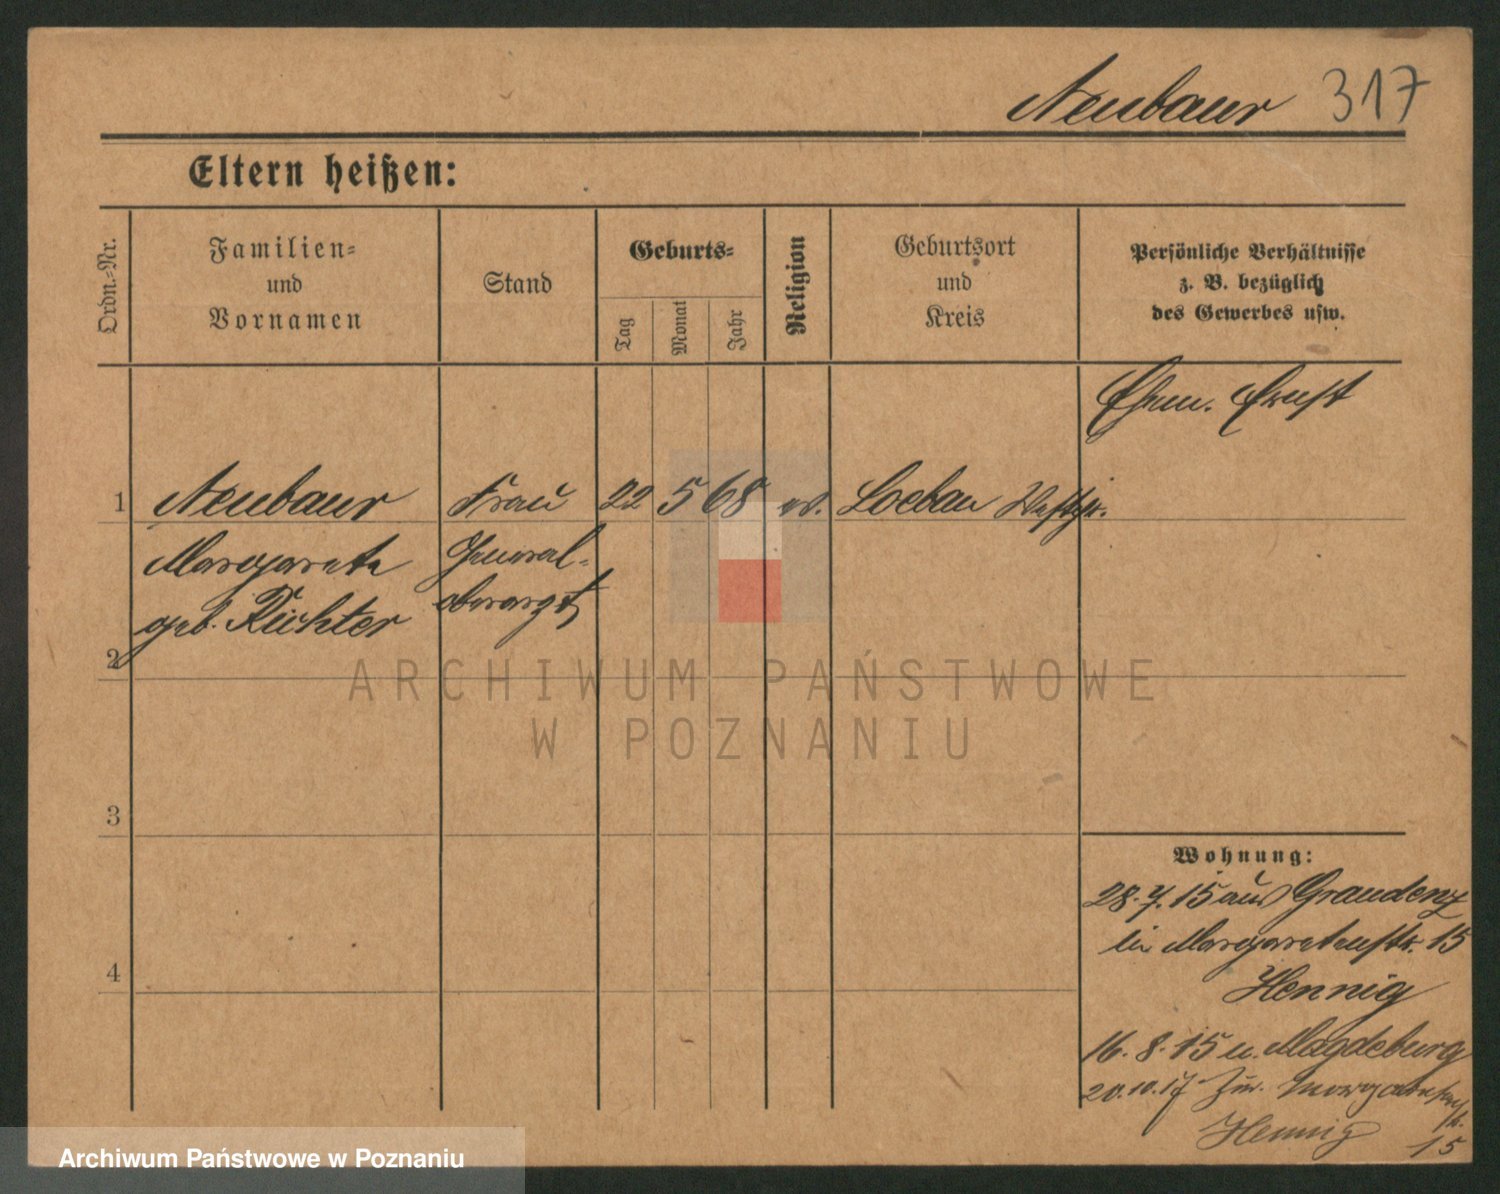 Neubaur 317
Eltern heißen:
Ordn.-Nr.
Familien-
und
Vornamen
Stand
Geburts-
Tag
Monat
Jahr
Religion
Geburtsort
und
Kreis
Persönliche Verhältnisse
z. B. bezüglich
des Gewerbes usw.
Ehem. Ernst
1 Neubaur Frau 22 5 68 ev. Loebau Westpr.
Margarete General-
geb. Richter oberarzt
2
3
4
Wohnung:
28.7.15 aus Graudenz
Margaretenstr. 15
Hennig
16.8.15 n. Magdeburg
20.10.17 Zur. Margaretenstr.
Hennig 15
ARCHIWUM PAŃSTWOWE
W POZNANIU
Archiwum Państwowe w Poznaniu